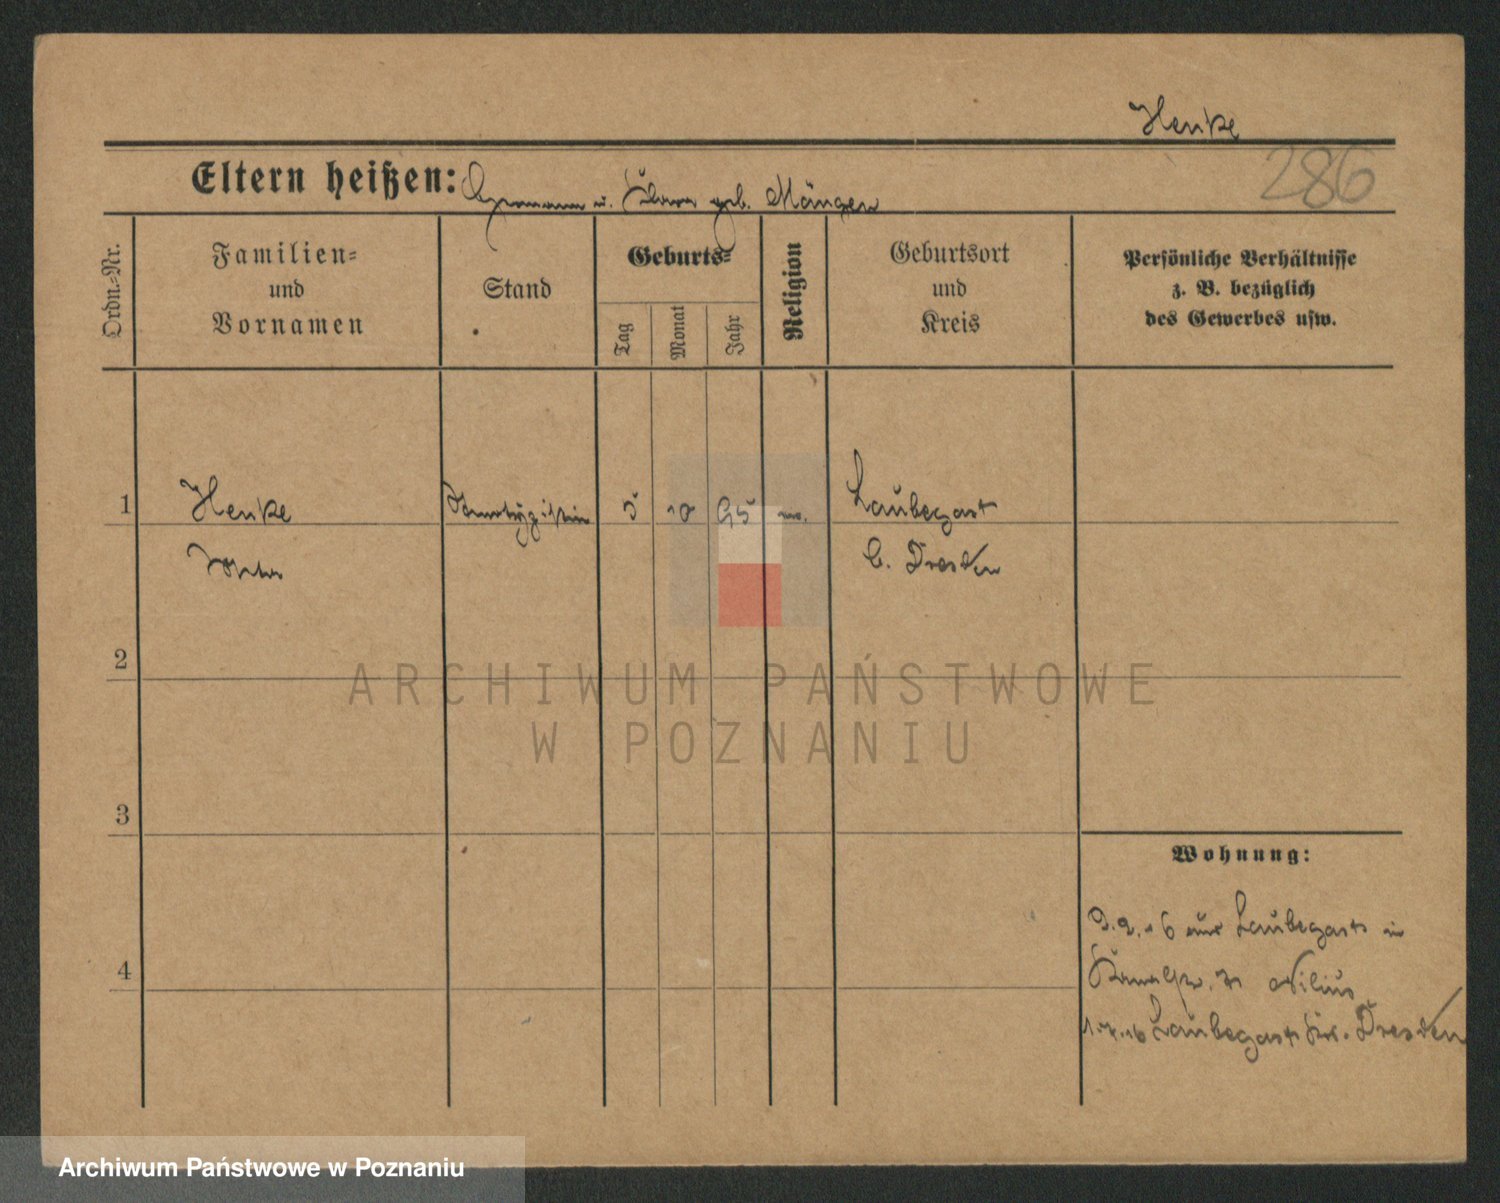 Henke
286
Eltern heißen: Hermann u. Klara geb. Mängen
Ordn.-Nr.
Familien-
und
Vornamen
Stand
Geburts-
Tag
Monat
Jahr
Religion
Geburtsort
und
Kreis
Persönliche Verhältnisse
z. B. bezüglich
des Gewerbes usw.
1 Henke 5 10 95 Laubegast
b. Dresden
2
3
4
ARCHIWUM PAŃSTWOWE
W POZNANIU
Wohnung:
aus Laubegast in
1.7.16 Laubegast Kr. Dresden
Archiwum Państwowe w Poznaniu